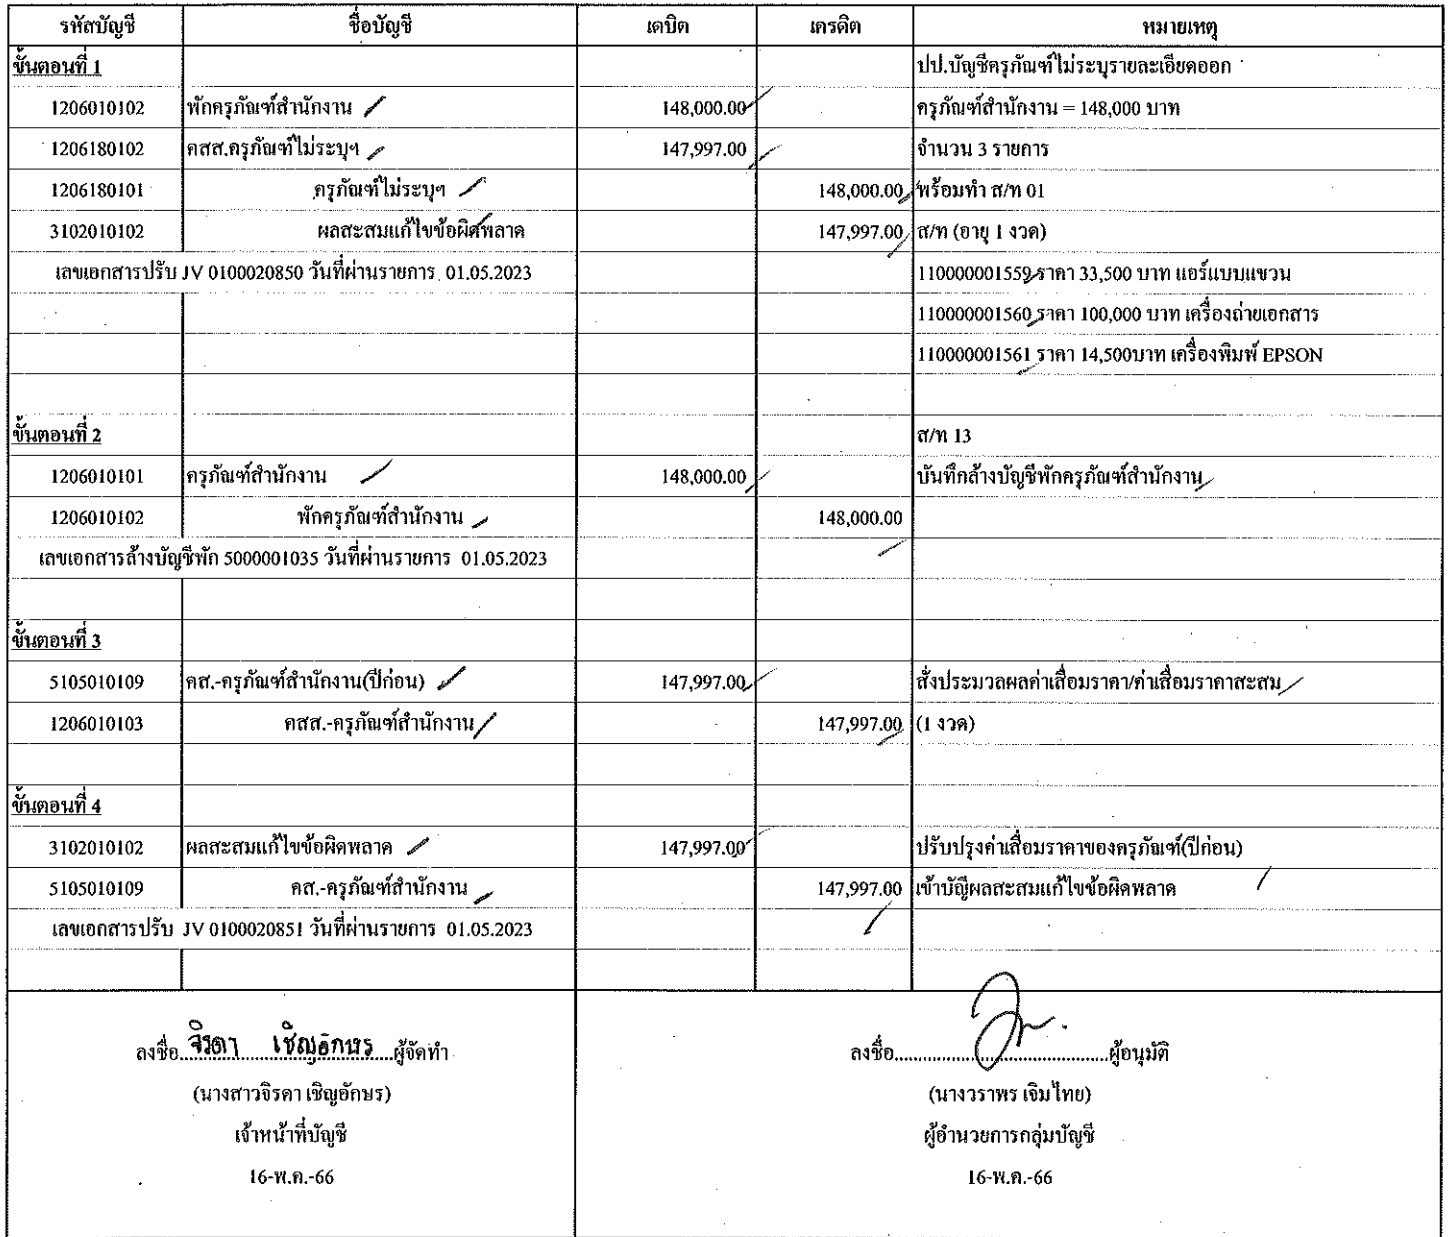 รหัสบัญชี ชื่อบัญชี เดบิต เครดิต หมายเหตุ
ขั้นตอนที่ 1 ปป.บัญชีครุภัณฑ์ไม่ระบุรายละเอียดออก
1206010102 พักครุภัณฑ์สำนักงาน 148,000.00 ครุภัณฑ์สำนักงาน = 148,000 บาท
1206180102 คสส.ครุภัณฑ์ไม่ระบุฯ 147,997.00 จำนวน 3 รายการ
1206180101 ครุภัณฑ์ไม่ระบุฯ 148,000.00 พร้อมทำ ส/ท 01
3102010102 ผลสะสมแก้ไขข้อผิดพลาด 147,997.00 ส/ท (อายุ 1 งวด)
เลขเอกสารปรับ JV 0100020850 วันที่ผ่านรายการ 01.05.2023 110000001559 ราคา 33,500 บาท แอร์แบบแขวน
110000001560 ราคา 100,000 บาท เครื่องถ่ายเอกสาร
110000001561 ราคา 14,500บาท เครื่องพิมพ์ EPSON
ขั้นตอนที่ 2 ส/ท 13
1206010101 ครุภัณฑ์สำนักงาน 148,000.00 บันทึกล้างบัญชีพักครุภัณฑ์สำนักงาน
1206010102 พักครุภัณฑ์สำนักงาน 148,000.00
เลขเอกสารล้างบัญชีพัก 5000001035 วันที่ผ่านรายการ 01.05.2023
ขั้นตอนที่ 3
5105010109 คส.-ครุภัณฑ์สำนักงาน(ปีก่อน) 147,997.00 สั่งประมวลผลค่าเสื่อมราคา/ค่าเสื่อมราคาสะสม
1206010103 คสส.-ครุภัณฑ์สำนักงาน 147,997.00 (1 งวด)
ขั้นตอนที่ 4
3102010102 ผลสะสมแก้ไขข้อผิดพลาด 147,997.00 ปรับปรุงค่าเสื่อมราคาของครุภัณฑ์(ปีก่อน)
5105010109 คส.-ครุภัณฑ์สำนักงาน 147,997.00 เข้าบัญีผลสะสมแก้ไขข้อผิดพลาด
เลขเอกสารปรับ JV 0100020851 วันที่ผ่านรายการ 01.05.2023
ลงชื่อ จิรดา เชิญอักษร ผู้จัดทำ ลงชื่อ ผู้อนุมัติ
(นางสาวจิรดา เชิญอักษร) (นางวราพร เจิมไทย)
เจ้าหน้าที่บัญชี ผู้อำนวยการกลุ่มบัญชี
16-พ.ค.-66 16-พ.ค.-66